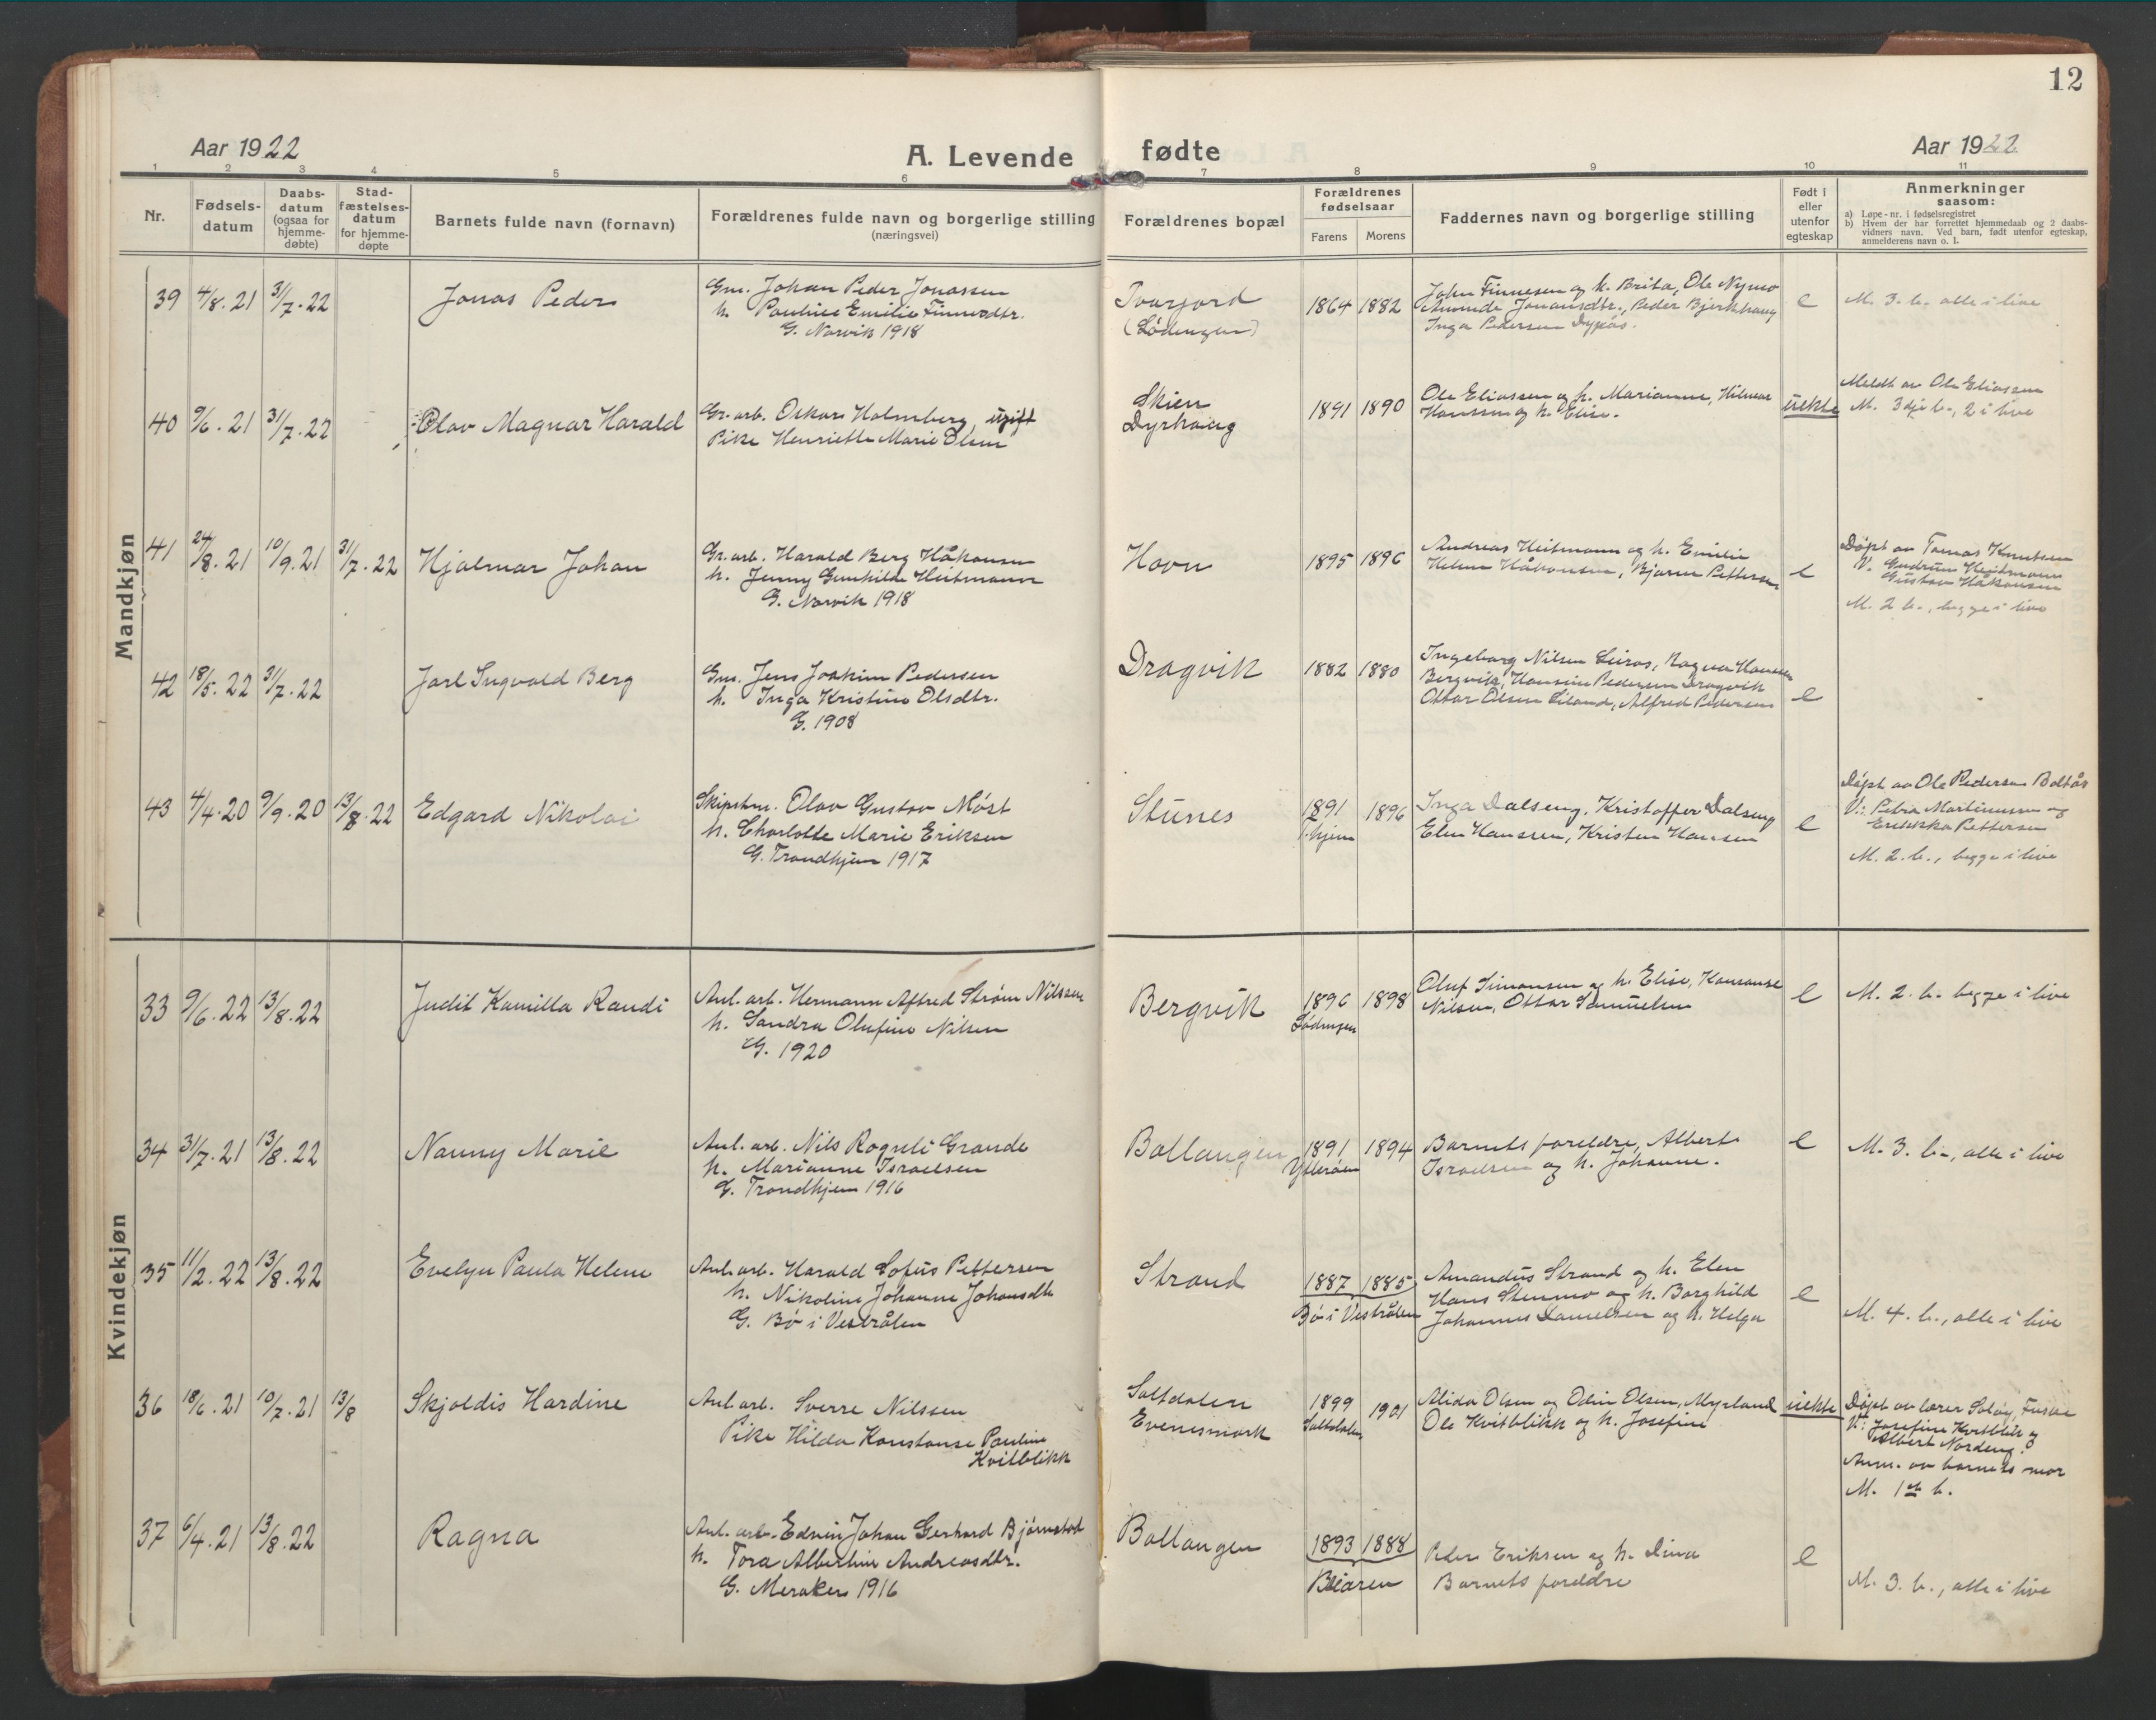 12
Aar 1922
A. Levende fødte
Aar 1922
1 2 3 4 5 6 7 8 9 10 11
Nr.
Fødsels-
datum
Daabs-
datum
(ogsaa for
hjemme-
døbte)
Stad-
fæstelses-
datum
for hjemme-
døpte
Barnets fulde navn (fornavn)
Forældrenes fulde navn og borgerlige stilling
(næringsvei)
Forældrenes bopæl
Forældrenes
fødselsaar
Farens Morens
Faddernes navn og borgerlige stilling
Født i
eller
utenfor
egteskap
Anmerkninger
saasom:
a) Løpe-nr. i fødselsregistret
b) Hvem der har forrettet hjemmedaab og 2 daabs-
vidners navn. Ved barn, født utenfor egteskap,
anmelderens navn o. l.
Mandkjøn
39 4/8.21 31/7.22
Jonas Peder
Gm. Johan Peder Jonassen
h. Pauline Emilie Finnesdtr.
G. Narvik 1918
Tvarfjord
(Lødingen)
1864 1882
John Finnesen og h. Brita, Ole Nymo
Jonasdtr., Peder Bjerkhaug
Inga Pedersen Dypås.
e
M. 3. b. alle i live
40 9/6.21 31/7.22
Olav Magnar Harald
Gr.arb. Oskar Holmberg, ugift
Pike Henriette Marie Olsen
Skien
Dyrhaug
1891 1890
Ole Eliassen og h. Marianne, Hilmar
Hanssen og h. Elise.
uekte
Meldt av Ole Eliassen
M. 3dje b., 2 i live
41 24/8.21 10/9.21 31/7.22
Hjalmar Johan
Gr.arb. Harald Berg Håkonsen
h. Jenny Gunhilde Heitmann
G. Narvik 1918
Havn
1895 1896
Andreas Heitmann og h. Emilie
Helene Håkonsen, Bjarne Pettersen
e
Døpt av Tomas Knutsen
V. Gudrun Heitmann
Gustav Håkonsen
M. 2 b., begge i live
42 18/5.22 31/7.22
Jarl Ingvald Berg
Gm. Jens Joakim Pedersen
h. Inga Kristine Olsdtr.
G. 1908
Dragvik
1882 1880
Ingeborg Nilsen Leiros, Ragna Hansen
Bergvik, Hansine Pedersen Dragvik
Ottar Olsen Liland, Alfred Pedersen
e
43 4/4.20 9/9.20 13/8.22
Edgard Nikolai
Skipstm. Olav Gustav Møst
h. Charlotte Marie Eriksen
G. Trondhjem 1917
Stunes
1891 1896
T.hjem
Inga Dalseng, Kristoffer Dalseng
Elen Hanssen, Kristen Hansen
e
Døpt av Ole Pedersen Boltås
V.: Petra Martinussen og
Erikka Pettersen
M. 2. b., begge i live
Kvindekjøn
33 9/6.22 13/8.22
Judit Kamilla Randi
Anl.arb. Hermann Alfred Strøm Nilssen
h. Sandra Olufine Nilsen
G. 1920
Bergvik
1896 1898
Lødingen
Oluf Simonsen og h. Elise, Konstanse
Nilsen, Ottar Samuelsen
e
M. 2. b. begge i live
34 31/7.21 13/8.22
Nanny Marie
Anl.arb. Nils Rognli Grande
h. Marianne Israelsen
G. Trondhjem 1916
Ballangen
1891 1894
Ytterøen
Barnets foreldre, Albert
Israelsen og h. Johanne.
e
M. 3. b., alle i live
35 11/2.22 13/8.22
Evelyn Paula Helene
Anl.arb. Harald Sofus Pettersen
h. Nikoline Johanne Johansdtr
G. Bø i Vesterålen
Strand
1887 1885
Bø i Vesterålen
Amandus Strand og h. Elen
Hans Stenmo og h. Borghild
Johannes Danielsen og h. Helga
e
M. 4. b., alle i live
36 18/6.21 10/7.21 13/8
Skjoldis Hardine
Anl.arb. Sverre Nilssen
Pike Hilda Konstanse Pauline
Kvitblikk
Saltdalen
Evenesmark
1899 1901
Saltdalen
Alida Olsen og Odin Olsen, Myrland
Ole Kvitblikk og h. Josefine
uekte
Døpt av lærer Soløy, Fuske
V: Josefine Kvitblik og
Albert Nordeng.
Anm. av barnets mor
M. 1ste b.
37 6/4.21 13/8.22
Ragna
Anl.arb. Edvin Johan Gerhard Bjørnstad
h. Tora Albertine Andreasdtr.
G. Meraker 1916
Ballangen
1893 1888
Beiaren
Peder Eriksen og h. Dina
Barnets foreldre
e
M. 3. b., alle i live